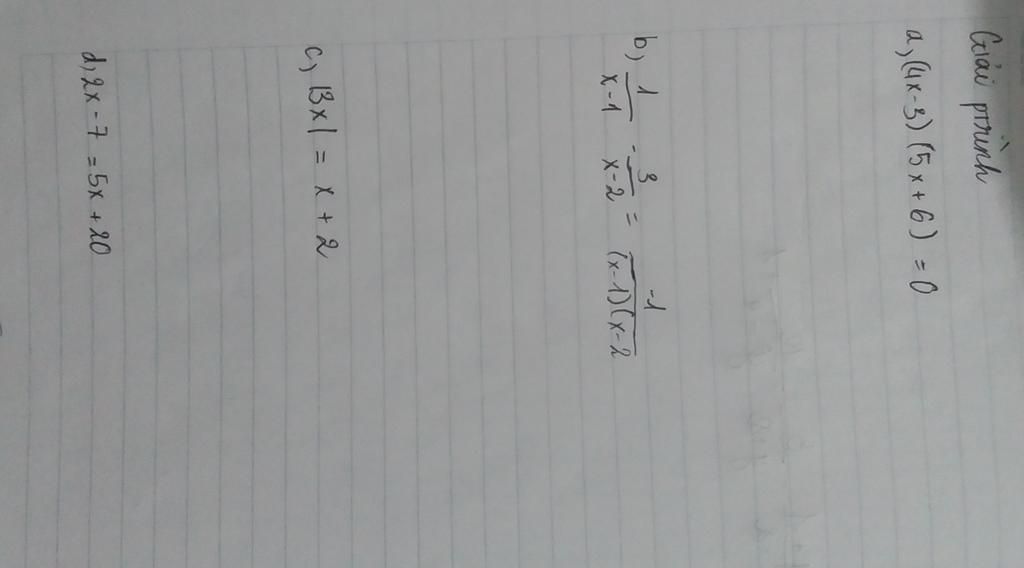 Giải ptrình
a, (4x-3) (5x+6) = 0
b, 1/(x-1) - 3/(x-2) = -1/((x-1)(x-2
c, |3x| = x + 2
d, 2x - 7 = 5x + 20